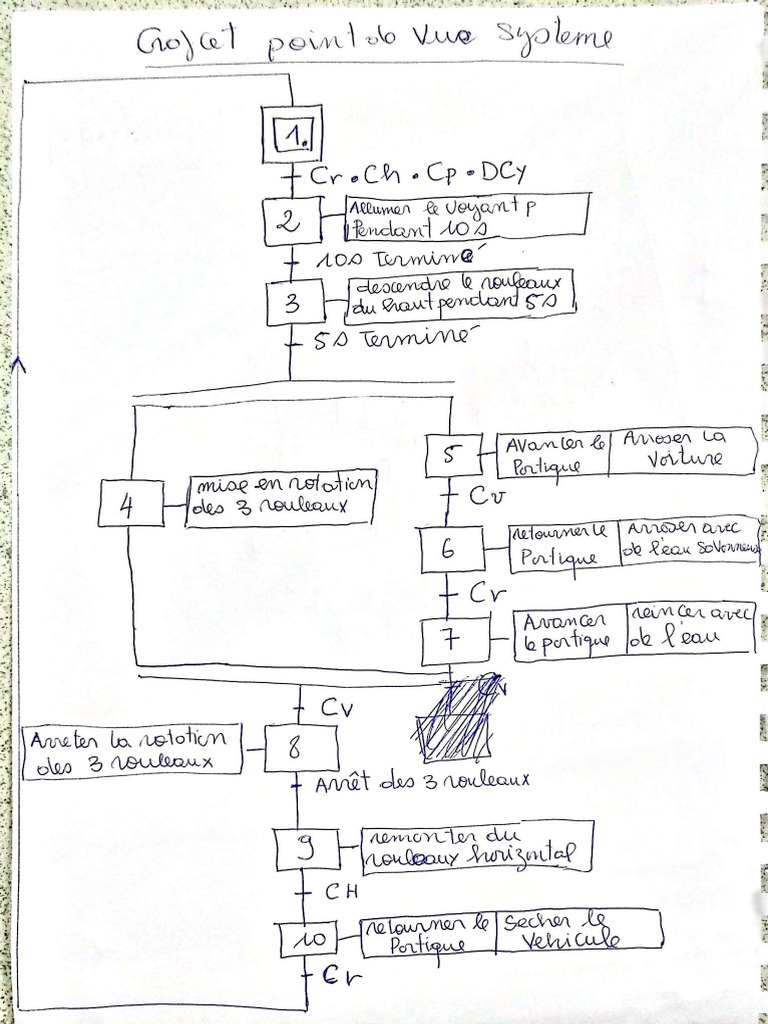 Grafcet point de vue systeme
1.
Cr . Ch . Cp . DCy
2
Allumer le voyant p
Pendant 10s
10s Terminé
3
descendre le rouleaux
du haut pendant 5s
5s Terminé
5
Avancer le
Portique
Arroser la
Voiture
4
mise en rotation
des 3 rouleaux
Cv
6
retourner le
Portique
Arroser avec
de l'eau savonneus
Cr
7
Avancer
le portique
reincer avec
de l'eau
Cv
Cv
Arreter la rotation
des 3 rouleaux
8
Arrêt des 3 rouleaux
9
remonter du
rouleaux horizontal
CH
10
retourner le
Portique
Secher le
Vehicule
Cr